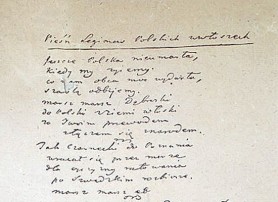 Pieśń Legionów Polskich we Włoszech
Jeszcze Polska nieumarła,
kiedy my żyjemy.
co nam obca moc wydarła,
szablą odbijemy.
marsz marsz Dąbrski
do Polski z ziemi włoski
za Twoim przewodem
złączem się z narodem.
Jak Czarnecki do Poznania
wracał się przez morze
dla ojczyzny ratowania
po Szwedzkim rozbiorze.
marsz marsz